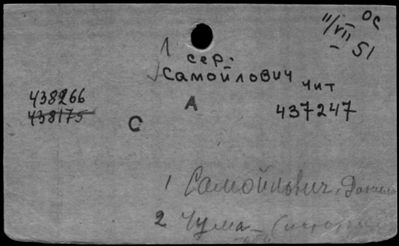 ОС
11/VII 51
1 сер.
Самойлович
чит
438266
438175
А
437247
С
1 Самойлович, Даниил
2 Чума